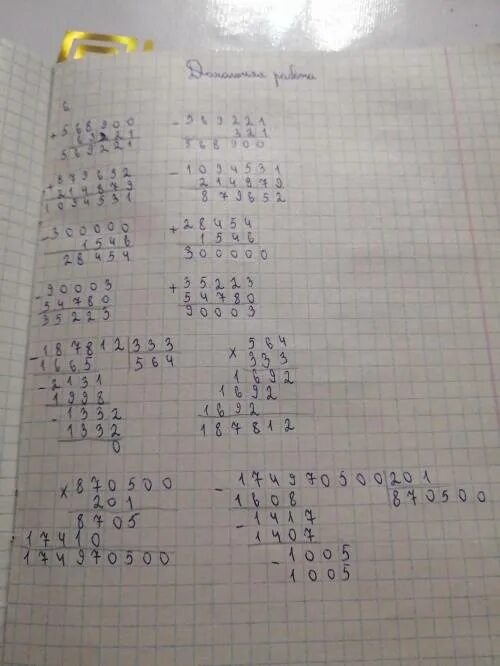 Домашняя работа
6
+568900
321
569221
-569221
321
568900
+879652
214879
1094531
-1094531
214879
879652
-300000
1546
28454
+28454
1546
300000
-90003
54780
35223
+35223
54780
90003
-187812 333
1665 564
-2131
1998
-1332
1332
0
×564
333
1692
1692
1692
187812
×870500
201
8705
17410
174970500
-174970500 201
1608 870500
-1417
1407
-1005
1005